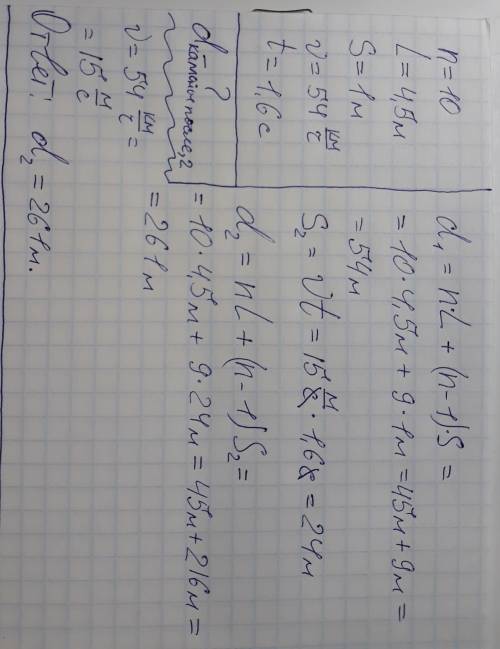 n = 10
L = 4,5м
S = 1м
v = 54 км/ч
t = 1,6 с
d камаза после, 2 - ?
v = 54 км/ч =
= 15 м/с
d₁ = n·L + (n-1)·S =
= 10·4,5м + 9·1м = 45м + 9м =
= 54м
S₂ = vt = 15 м/с · 1,6с = 24м
d₂ = nL + (n-1)S₂ =
= 10·4,5м + 9·24м = 45м + 216м =
= 261м
Ответ: d₂ = 261м.